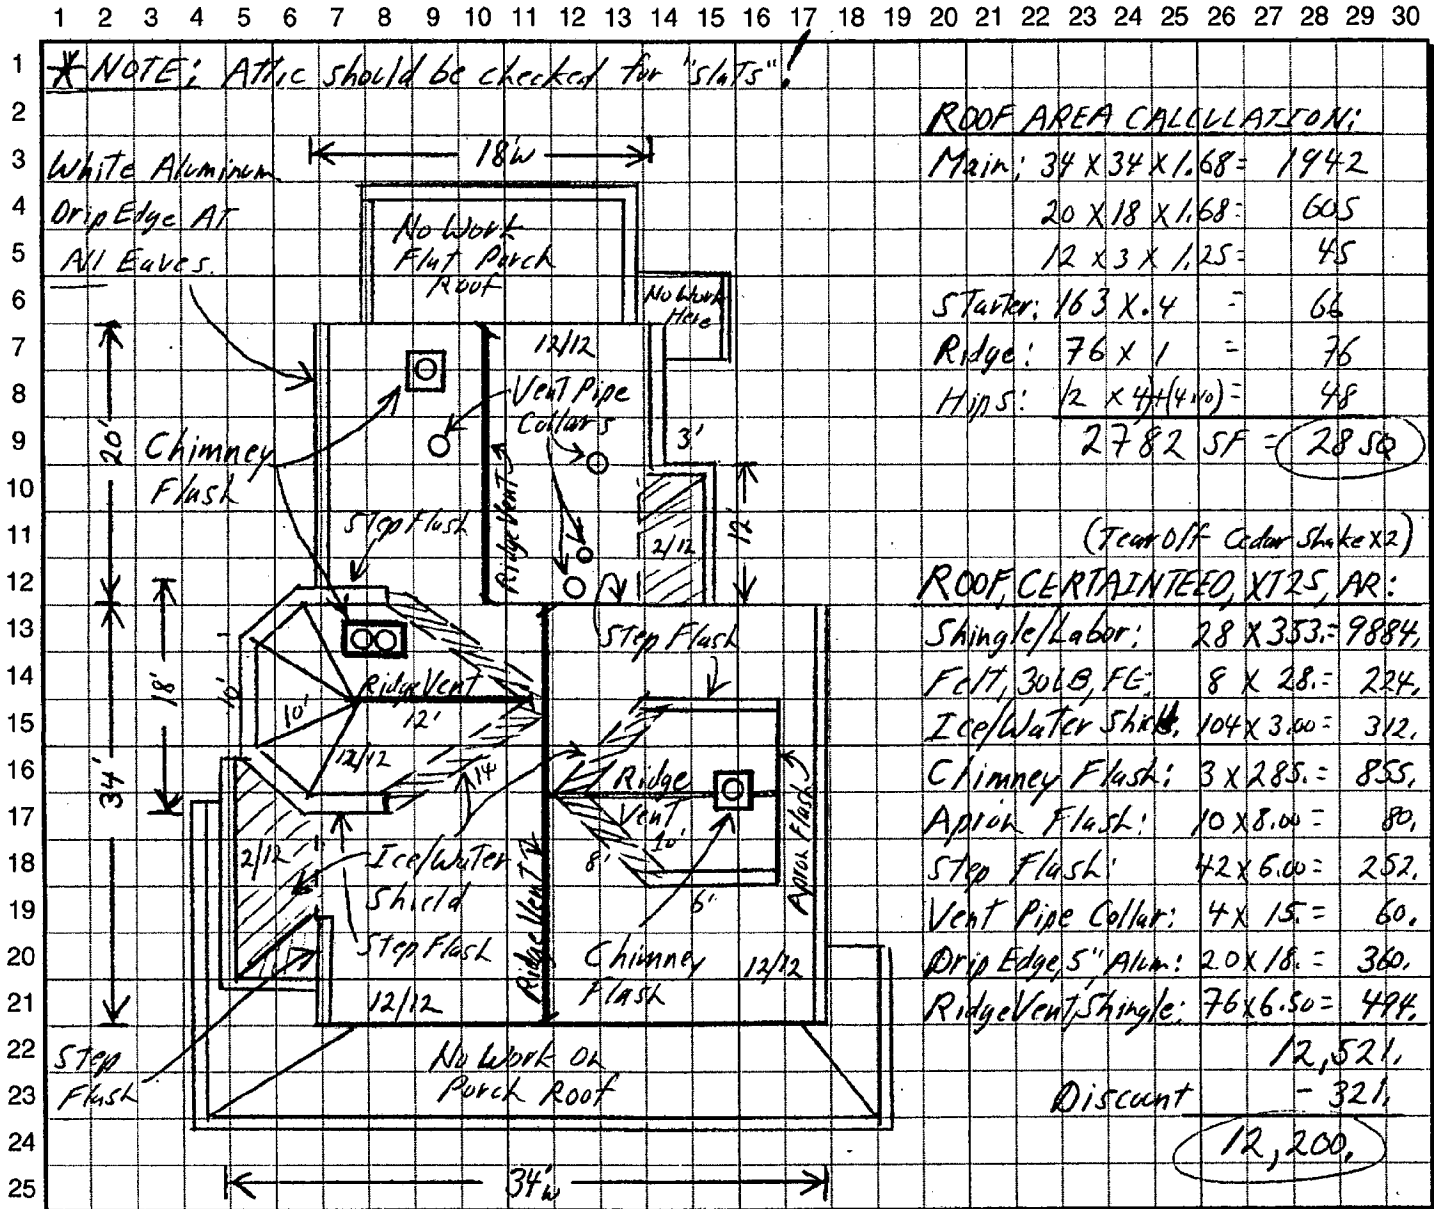 1 2 3 4 5 6 7 8 9 10 11 12 13 14 15 16 17 18 19 20 21 22 23 24 25 26 27 28 29 30
1
2
3
4
5
6
7
8
9
10
11
12
13
14
15
16
17
18
19
20
21
22
23
24
25
* NOTE: Attic should be checked for "slats"!
18'w
White Aluminum
Drip Edge AT
All Eaves.
No Work
Flat Porch
Roof
No Work
Here
12/12
Vent Pipe
Collars
3'
20'
Chimney
Flash
Step Flash
Ridge Vent
2/12
12'
Step Flash
18'
10'
10'
Ridge Vent
12'
12/12
14'
34'
Ridge
Vent
10'
8'
6'
Apron Flash
2/12
Ice/Water
Shield
Step Flash
Ridge Vent
Chimney
Flash
12/12
12/12
Step
Flash
No Work On
Porch Roof
34'w
ROOF AREA CALCULATION:
Main: 34 X 34 X 1.68= 1942
20 X 18 X 1.68= 605
12 X 3 X 1.25= 45
Starter: 163 X .4 = 66
Ridge: 76 X 1 = 76
Hips: 12 X 4)+(4x10)= 48
2782 SF = 28 SQ
(Tear Off Cedar Shake X2)
ROOF, CERTAINTEED, XT25, AR:
Shingle/Labor: 28 X 353.= 9884.
Felt, 30LB, FG: 8 X 28.= 224.
Ice/Water Shield: 104 X 3.00= 312.
Chimney Flash: 3 X 285.= 855.
Apron Flash: 10 X 8.00 = 80.
Step Flash: 42 X 6.00 = 252.
Vent Pipe Collar: 4 X 15.= 60.
Drip Edge, 5" Alum: 20 X 18.= 360.
Ridge Vent, Shingle: 76 X 6.50= 494.
12,521.
Discount - 321.
12,200.